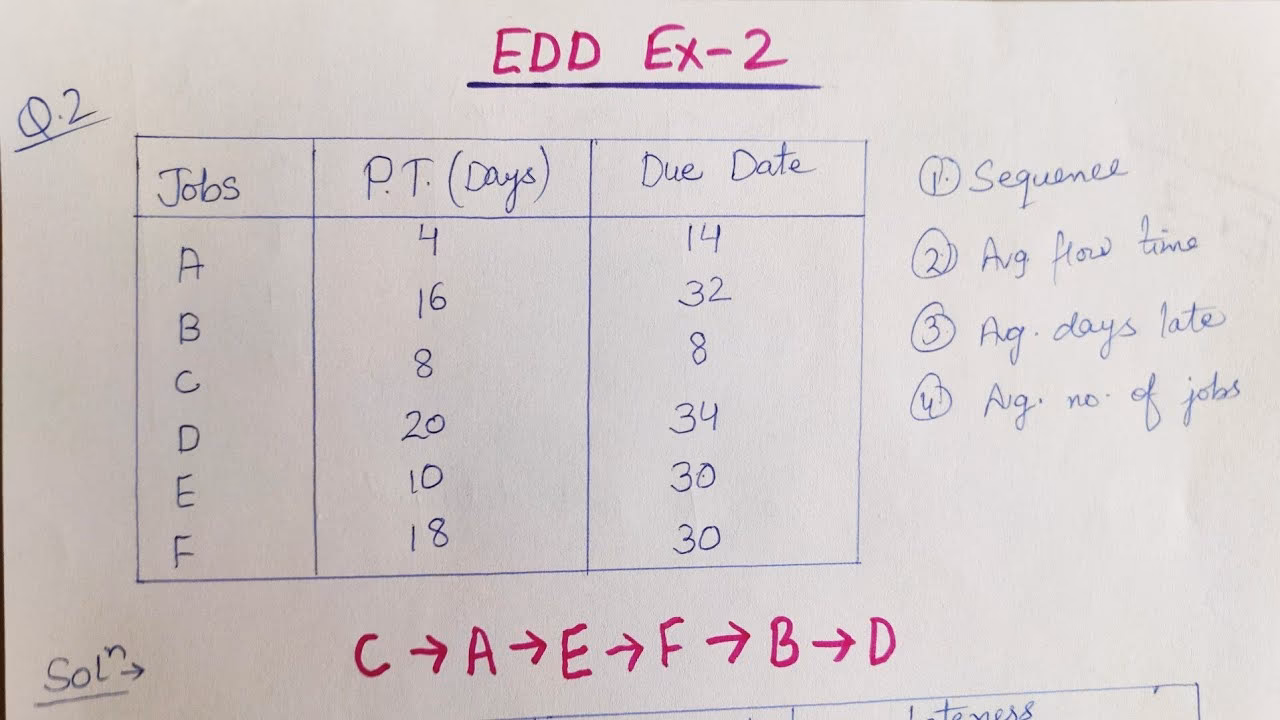 EDD Ex-2
Q.2
Jobs P.T. (Days) Due Date
A 4 14
B 16 32
C 8 8
D 20 34
E 10 30
F 18 30
① Sequence
② Avg flow time
③ Ag. days late
④ Ag. no. of jobs
Solⁿ→ C → A → E → F → B → D
lateness